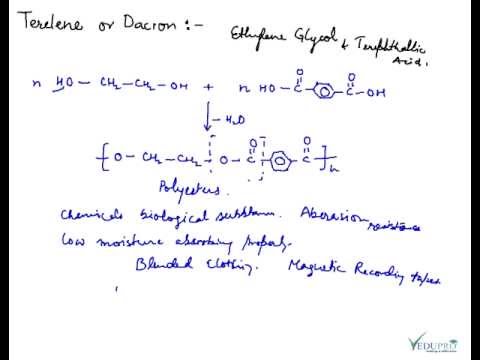 Terelene or Dacron :-
Ethylene Glycol & Terephthallic Acid.
n HO - CH2 - CH2 - OH + n HO - C - C - OH
O O
↓ - H2O
[ O - CH2 - CH2 - O - C - C ]n
O O
Polyesters.
Chemicals biological substan. Abrasion resistance
Low moisture absorbing property.
Blended Clothing. Magnetic Recording tapes
VEDUPRO